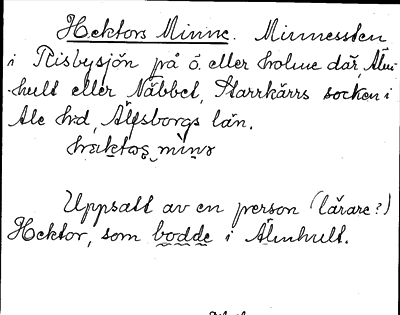 Hektors Minne. Minnessten
i Risbysjön på ö. eller holme där, Älm-
hult eller Näbbet, Starrkärrs socken i
Ale hd, Älfsborgs län.
minə
Uppsatt av en person (lärare?)
Hektor, som bodde i Älmhult.